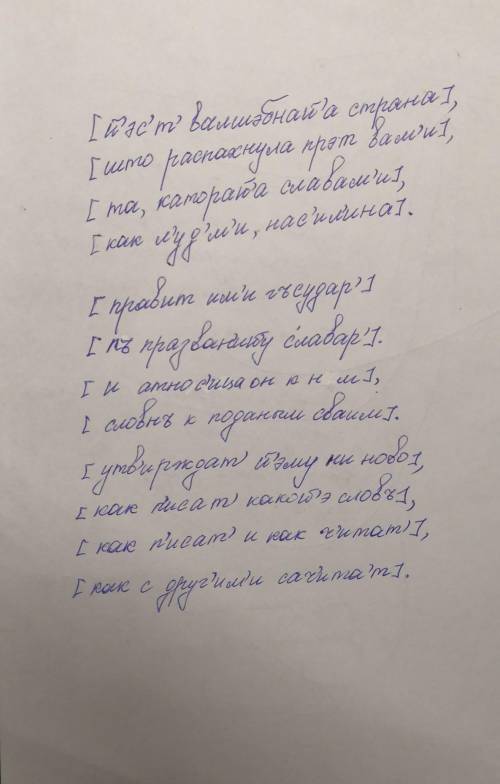 [й'эс'т' валшэбнай'а страна],
[што распахнула прэт вам'и],
[та, каторай'а славам'и],
[как л'уд'м'и, нас'ил'ина].
[правит им'и гъсудар']
[пъ празван'ийу славар'].
[и атнос'ица он к н м],
[словнъ к поданым сваим].
[утвирждат' й'эму ни ново],
[как п'исат' какой'э словъ],
[как п'исат' и как ч'итат'],
[как с друг'им'и сач'ита'т].